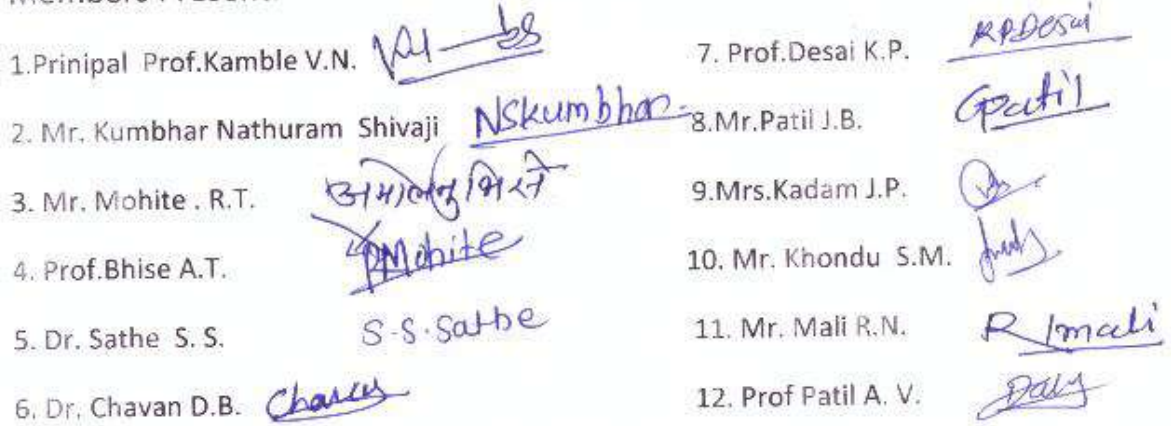 Members Present:
1.Prinipal Prof.Kamble V.N.
2. Mr. Kumbhar Nathuram Shivaji NSkumbhar
3. Mr. Mohite . R.T.
4. Prof.Bhise A.T. Mohite
5. Dr. Sathe S. S. S.S.Sathe
6. Dr. Chavan D.B.
7. Prof.Desai K.P. KPDesai
8.Mr.Patil J.B. Gpatil
9.Mrs.Kadam J.P.
10. Mr. Khondu S.M.
11. Mr. Mali R.N. Rmali
12. Prof Patil A. V.